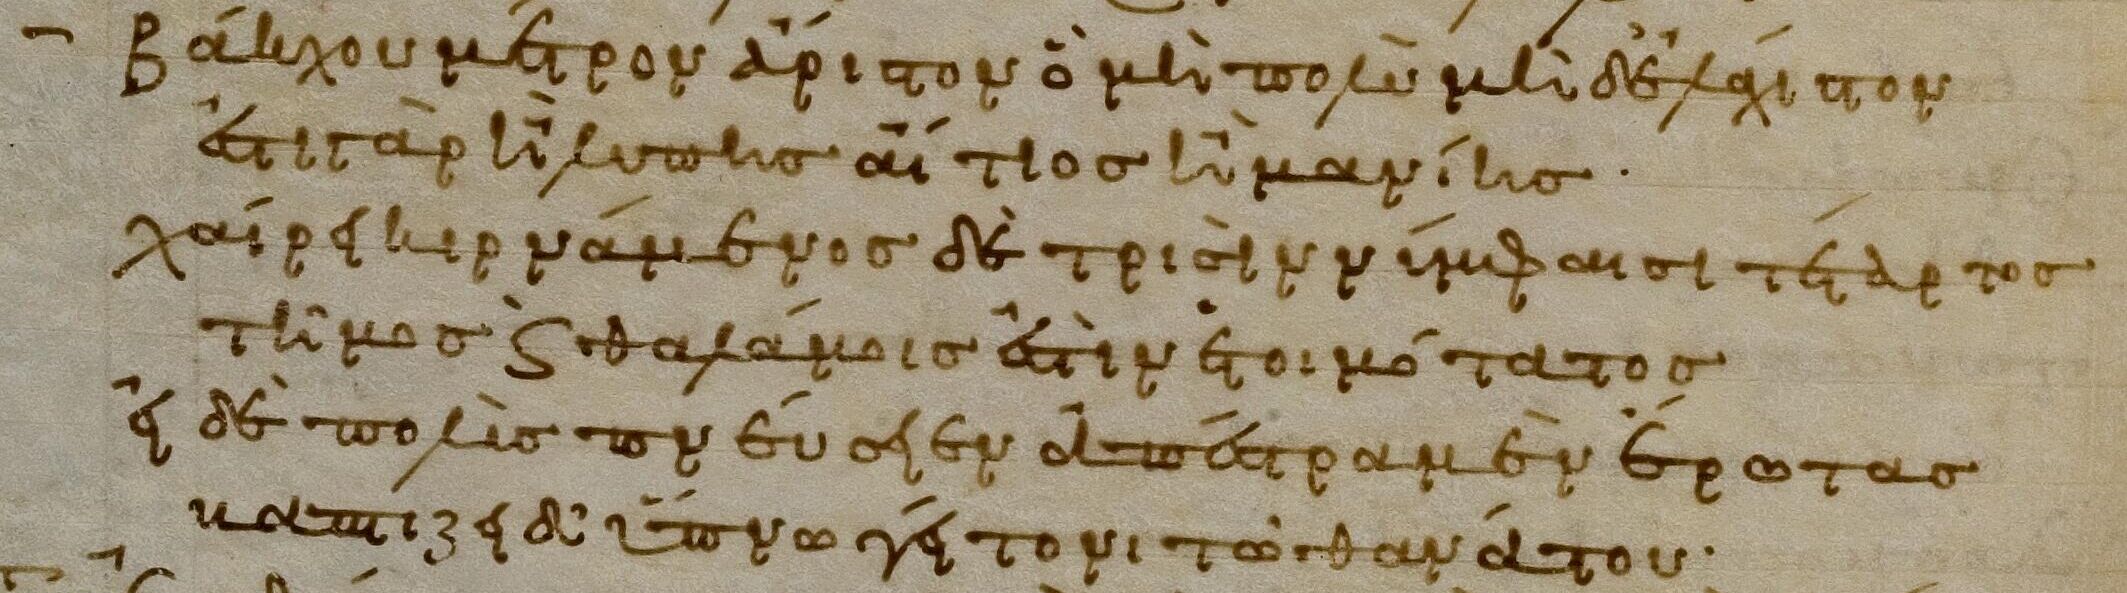 Βάκχου μέτρον ἄριστον ὃ μὴ πολὺ μὴ δ' ἐλάχιστον
ἔστι γὰρ ἢ λύπης αἴτιος ἢ μανίης.
χαίρει κιρνάμενος δὲ τρισὶν νύμφαισι τέταρτος
τῆμος καὶ θαλάμοις ἐστὶν ἑτοιμότατος
εἰ δὲ πολὺς πνεύσειεν ἀπέστραμεν ἔρωτας
βαπτίζει δ' ὕπνω γείτονι τῶ θανάτου.